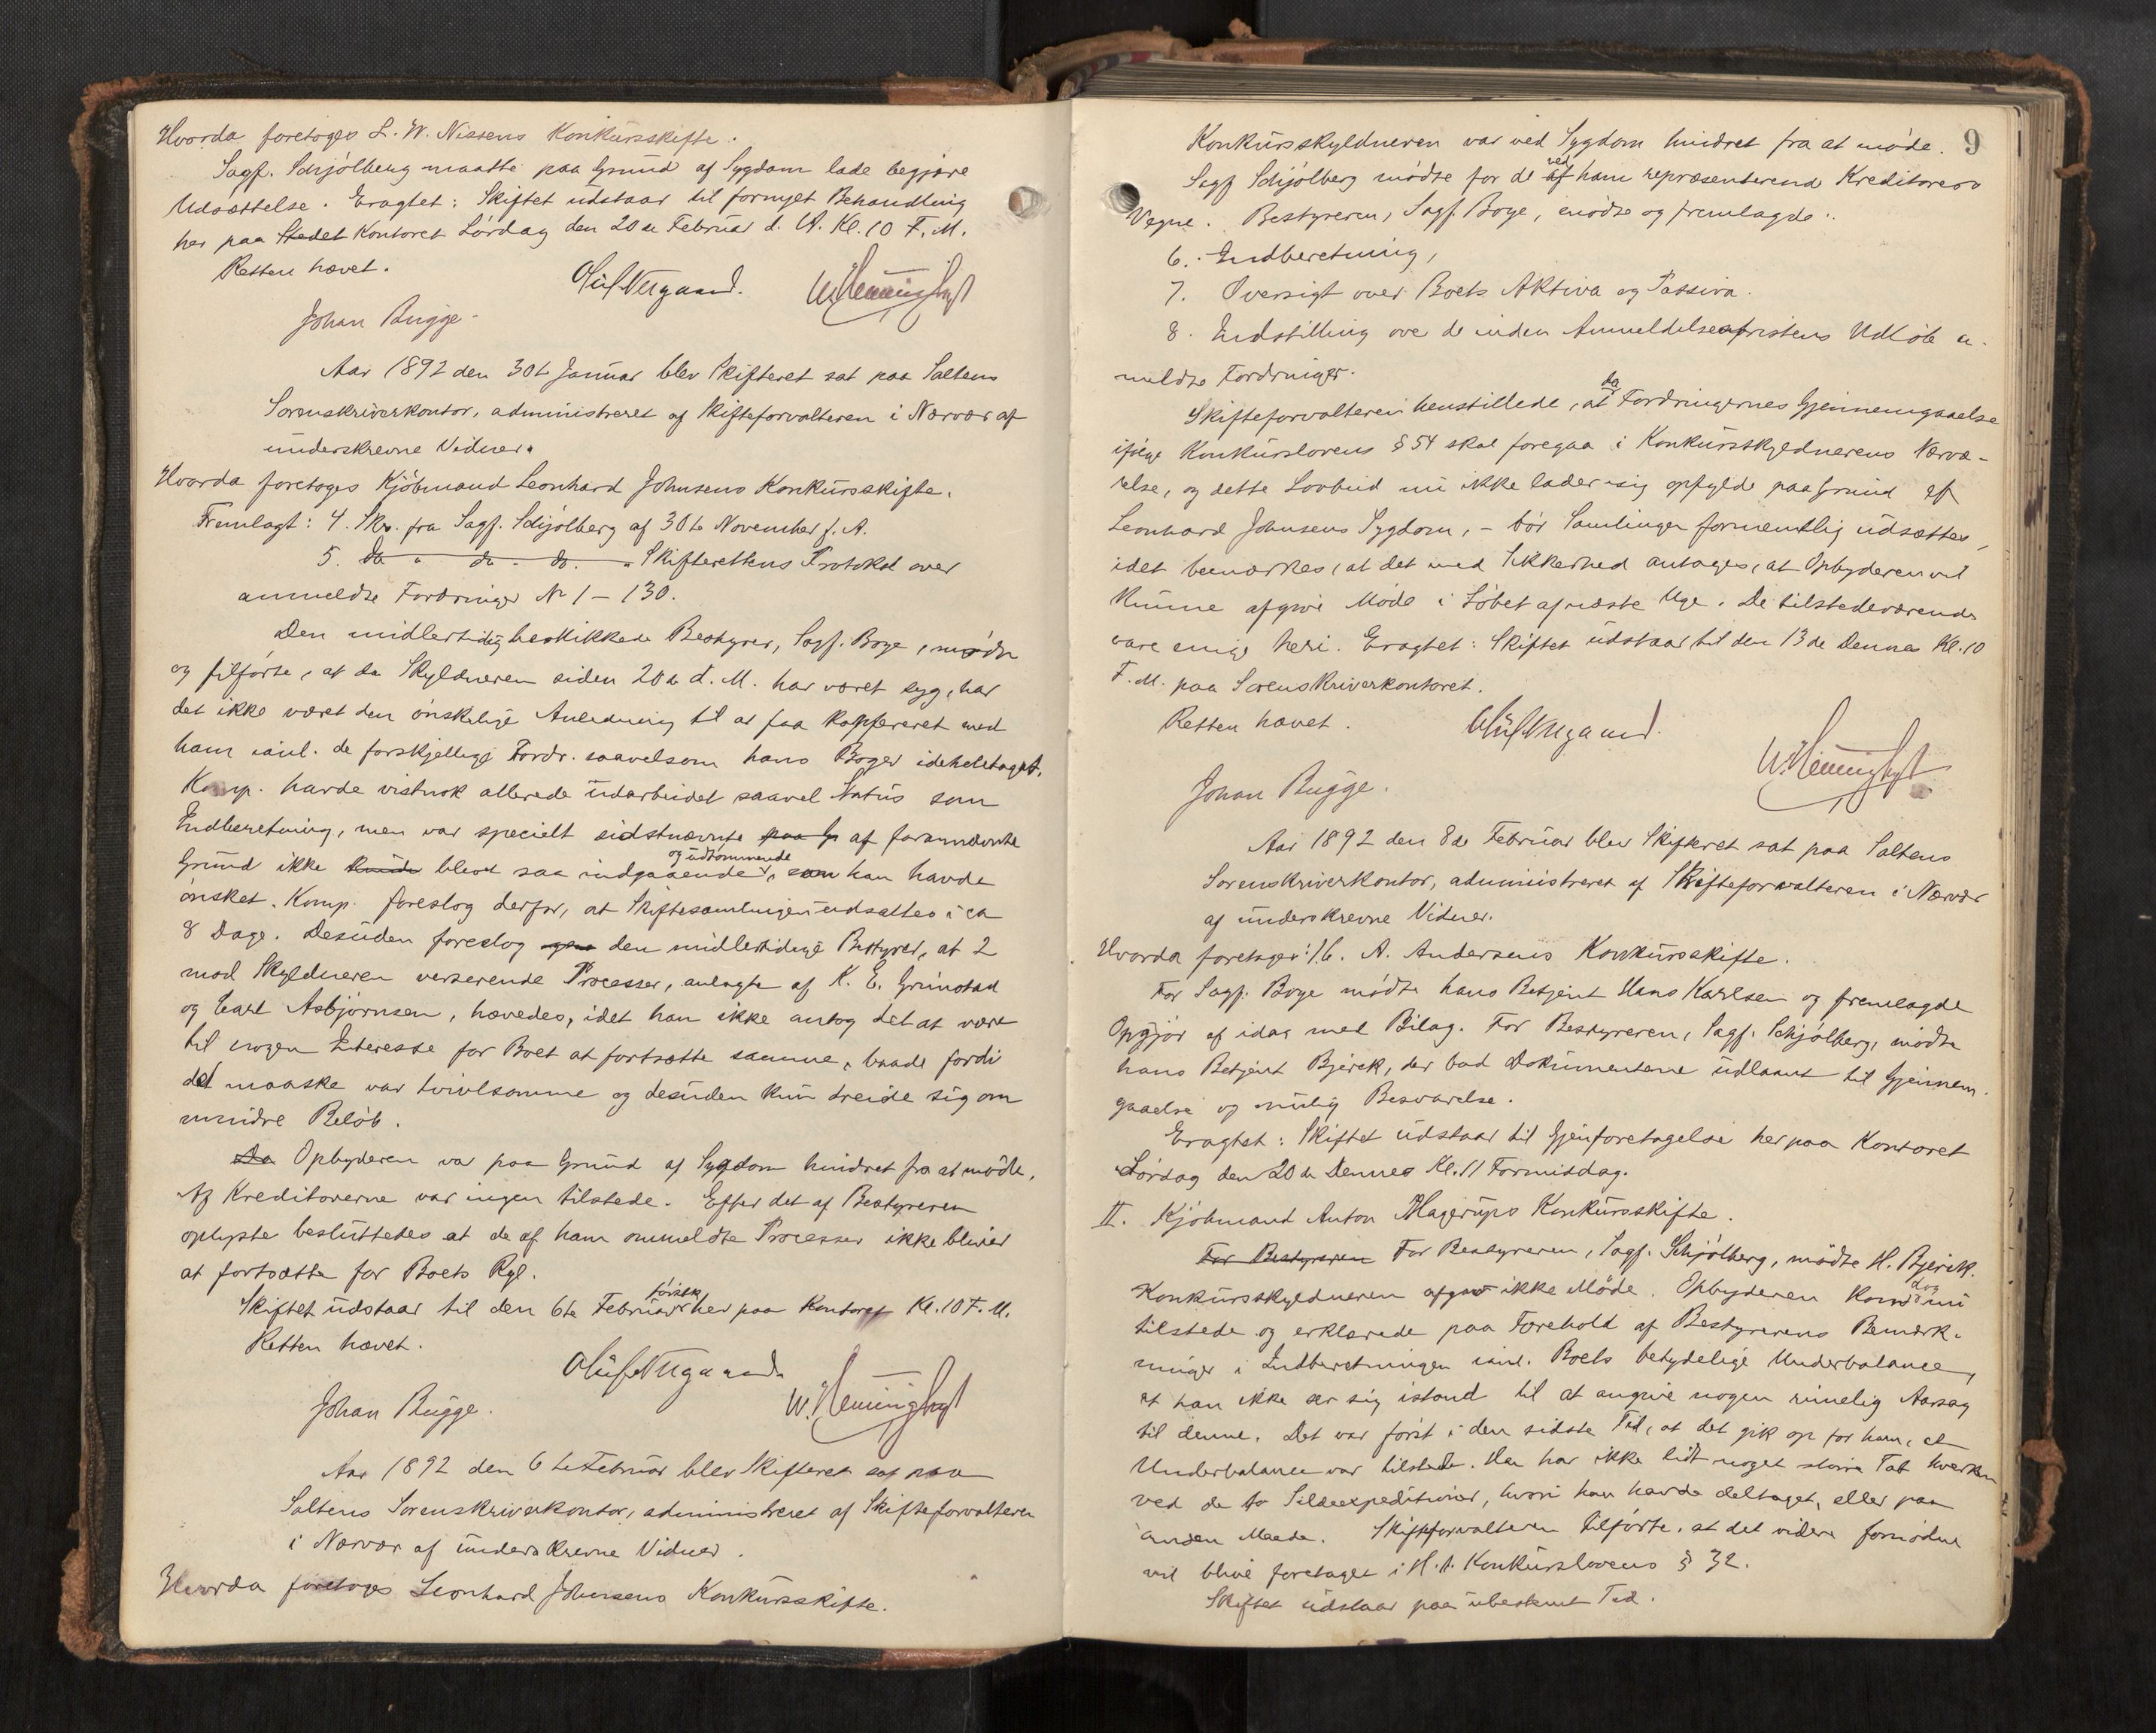 Hvorda foretoges L. W. Nissens Konkursskifte.
Sagf. Schjölberg maatte paa Grund af Sygdom lade begjære
Udsættelse. Eragtet: Skiftet udstaar til fornyet Behandling
her paa Stedet Kontoret Lördag den 20de Februar d. A. Kl. 10 F. M.
Retten hævet.
Oluf Nergaard.
Johan Bugge.
Aar 1892 den 30te Januar blev Skifteret sat paa Saltens
Sorenskriverkontor, administreret af Skifteforvalteren i Nærvær af
underskrevne Vidner.
Hvorda foretoges Kjöbmand Leonhard Johnsens Konkursskifte.
Fremlagt: 4. Skr. fra Sagf. Schjölberg af 30te November f. A.
5. do " do - do. " Skifterettens Protokol over
anmeldte Fordringer No 1 - 130.
Den midlertidig beskikkede Bestyrer, Sagf. Boye, mödte
og tilförte, at da Skyldneren siden 20de d. M. har været syg, har
det ikke været den önskelige Anledning til at faa konfereret med
ham anl. de forskjellige Fordr. saavelsom hans Böger idetheletaget.
Komp. havde vistnok allerede udarbeidet saavel Status som
Indberetning, men var specielt sidstnævnte paa Gr af forannævnte
Grund ikke kunde blevet saa indgaaende og udtömmende, som han havde
önsket. Komp. foreslog derfor, at Skiftesamlingen udsættes i ca
8 Dage. Desuden foreslog den midlertidige Bestyrer, at 2
mod Skyldneren verserende Processer, anlagte af K. E. Grimstad
og Carl Asbjörnsen, hævedes, idet han ikke antog det at være
til nogen Interesse for Boet at fortsætte samme, baade fordi
det maaske var tvivlsomme og desuden kun dreide sig om
mindre Belöb.
Da Opbyderen var paa Grund af Sygdom hindret fra at mödte.
Af Kreditorerne var ingen tilstede. Efter det af Bestyreren
oplyste besluttedes at de af ham ommeldte Processer ikke bliver
at fortsætte for Boets Rgl.
Skiftet udstaar til den 6te Februar förstk. her paa Kontoret Kl. 10 F. M.
Retten hævet.
Oluf Nergaard.
Johan Bugge.
Aar 1892 den 6te Februar blev Skifteret sat paa
Saltens Sorenskriverkontor, administreret af Skifteforvalteren
i Nærvær af underskrevne Vidner.
Hvorda foretoges Leonhard Johnsens Konkursskifte.
9
Konkursskyldneren var ved Sygdom hindret fra at möde.
Sagf Schjölberg mödte for de af ved ham repræsenterende Kreditorers
Vegne. Bestyreren, Sagf. Boye, mödte og fremlagde:
6. Indberetning,
7. Oversigt over Boets Aktiva og Passiva.
8. Indstilling over de inden Anmeldelsesfristens Udlöb an-
meldte Fordringer.
Skifteforvalteren henstillede, at da Fordringernes Gjennemgaaelse
ifölge Konkurslovens § 54 skal foregaa i Konkursskyldnerens Nærvæ-
relse, og dette Lovbud nu ikke lader sig opfylde paa Grund af
Leonhard Johnsens Sygdom, - bör Samlingen formentlig udsættes,
idet bemærkes, at det med Sikkerhed antages, at Opbyderen vil
kunne afgive Möde i Löbet af næste Uge. De tilstedeværende
vare enige heri. Eragtet: Skiftet udstaar til den 13de Dennes Kl. 10
F. M. paa Sorenskriverkontoret.
Retten hævet.
Oluf Nergaard.
Johan Bugge.
Aar 1892 den 8de Februar blev Skifteret sat paa Saltens
Sorenskriverkontor, administreret af Skifteforvalteren i Nærvær
af underskrevne Vidner.
Hvorda foretoges: A. Andersens Konkursskifte.
For Sagf. Boye mödte hans Betjent Hans Karlsen og fremlagde
Opgjör af idag med Bilag. For Bestyreren, Sagf. Schjölberg, mödte
hans Betjent Bjerck, der bad Dokumenterne udlaant til Gjennem-
gaaelse og mulig Besvarelse.
Eragtet: Skiftet udstaar til Gjenforetagelse her paa Kontoret
Lördag den 20de Dennes Kl. 11 Formiddag.
II. Kjöbmand Anton Hagerups Konkursskifte.
For Bestyreren For Bestyreren, Sagf. Schjölberg, mödte H. Bjerck.
Konkursskyldneren afgav ikke Möde. Opbyderen kom dog nu
tilstede og erklærede paa Forehold af Bestyrerens Bemærk-
ninger i Indberetningen anl. Boets betydelige Underbalance,
at han ikke ser sig istand til at angive nogen rimelig Aarsag
til denne. Det var först i den sidste Tid, at det gik op for ham, at
Underbalance var tilstede. Han har ikke lidt noget större Tab hverken
ved de to Sildeexpeditioner, hvori han havde deltaget, eller paa
anden Maade. Skifteforvalteren tilförte, at det videre fornödne
vil blive foretaget i H. t. Konkurslovens § 32.
Skiftet udstaar paa ubestemt Tid.